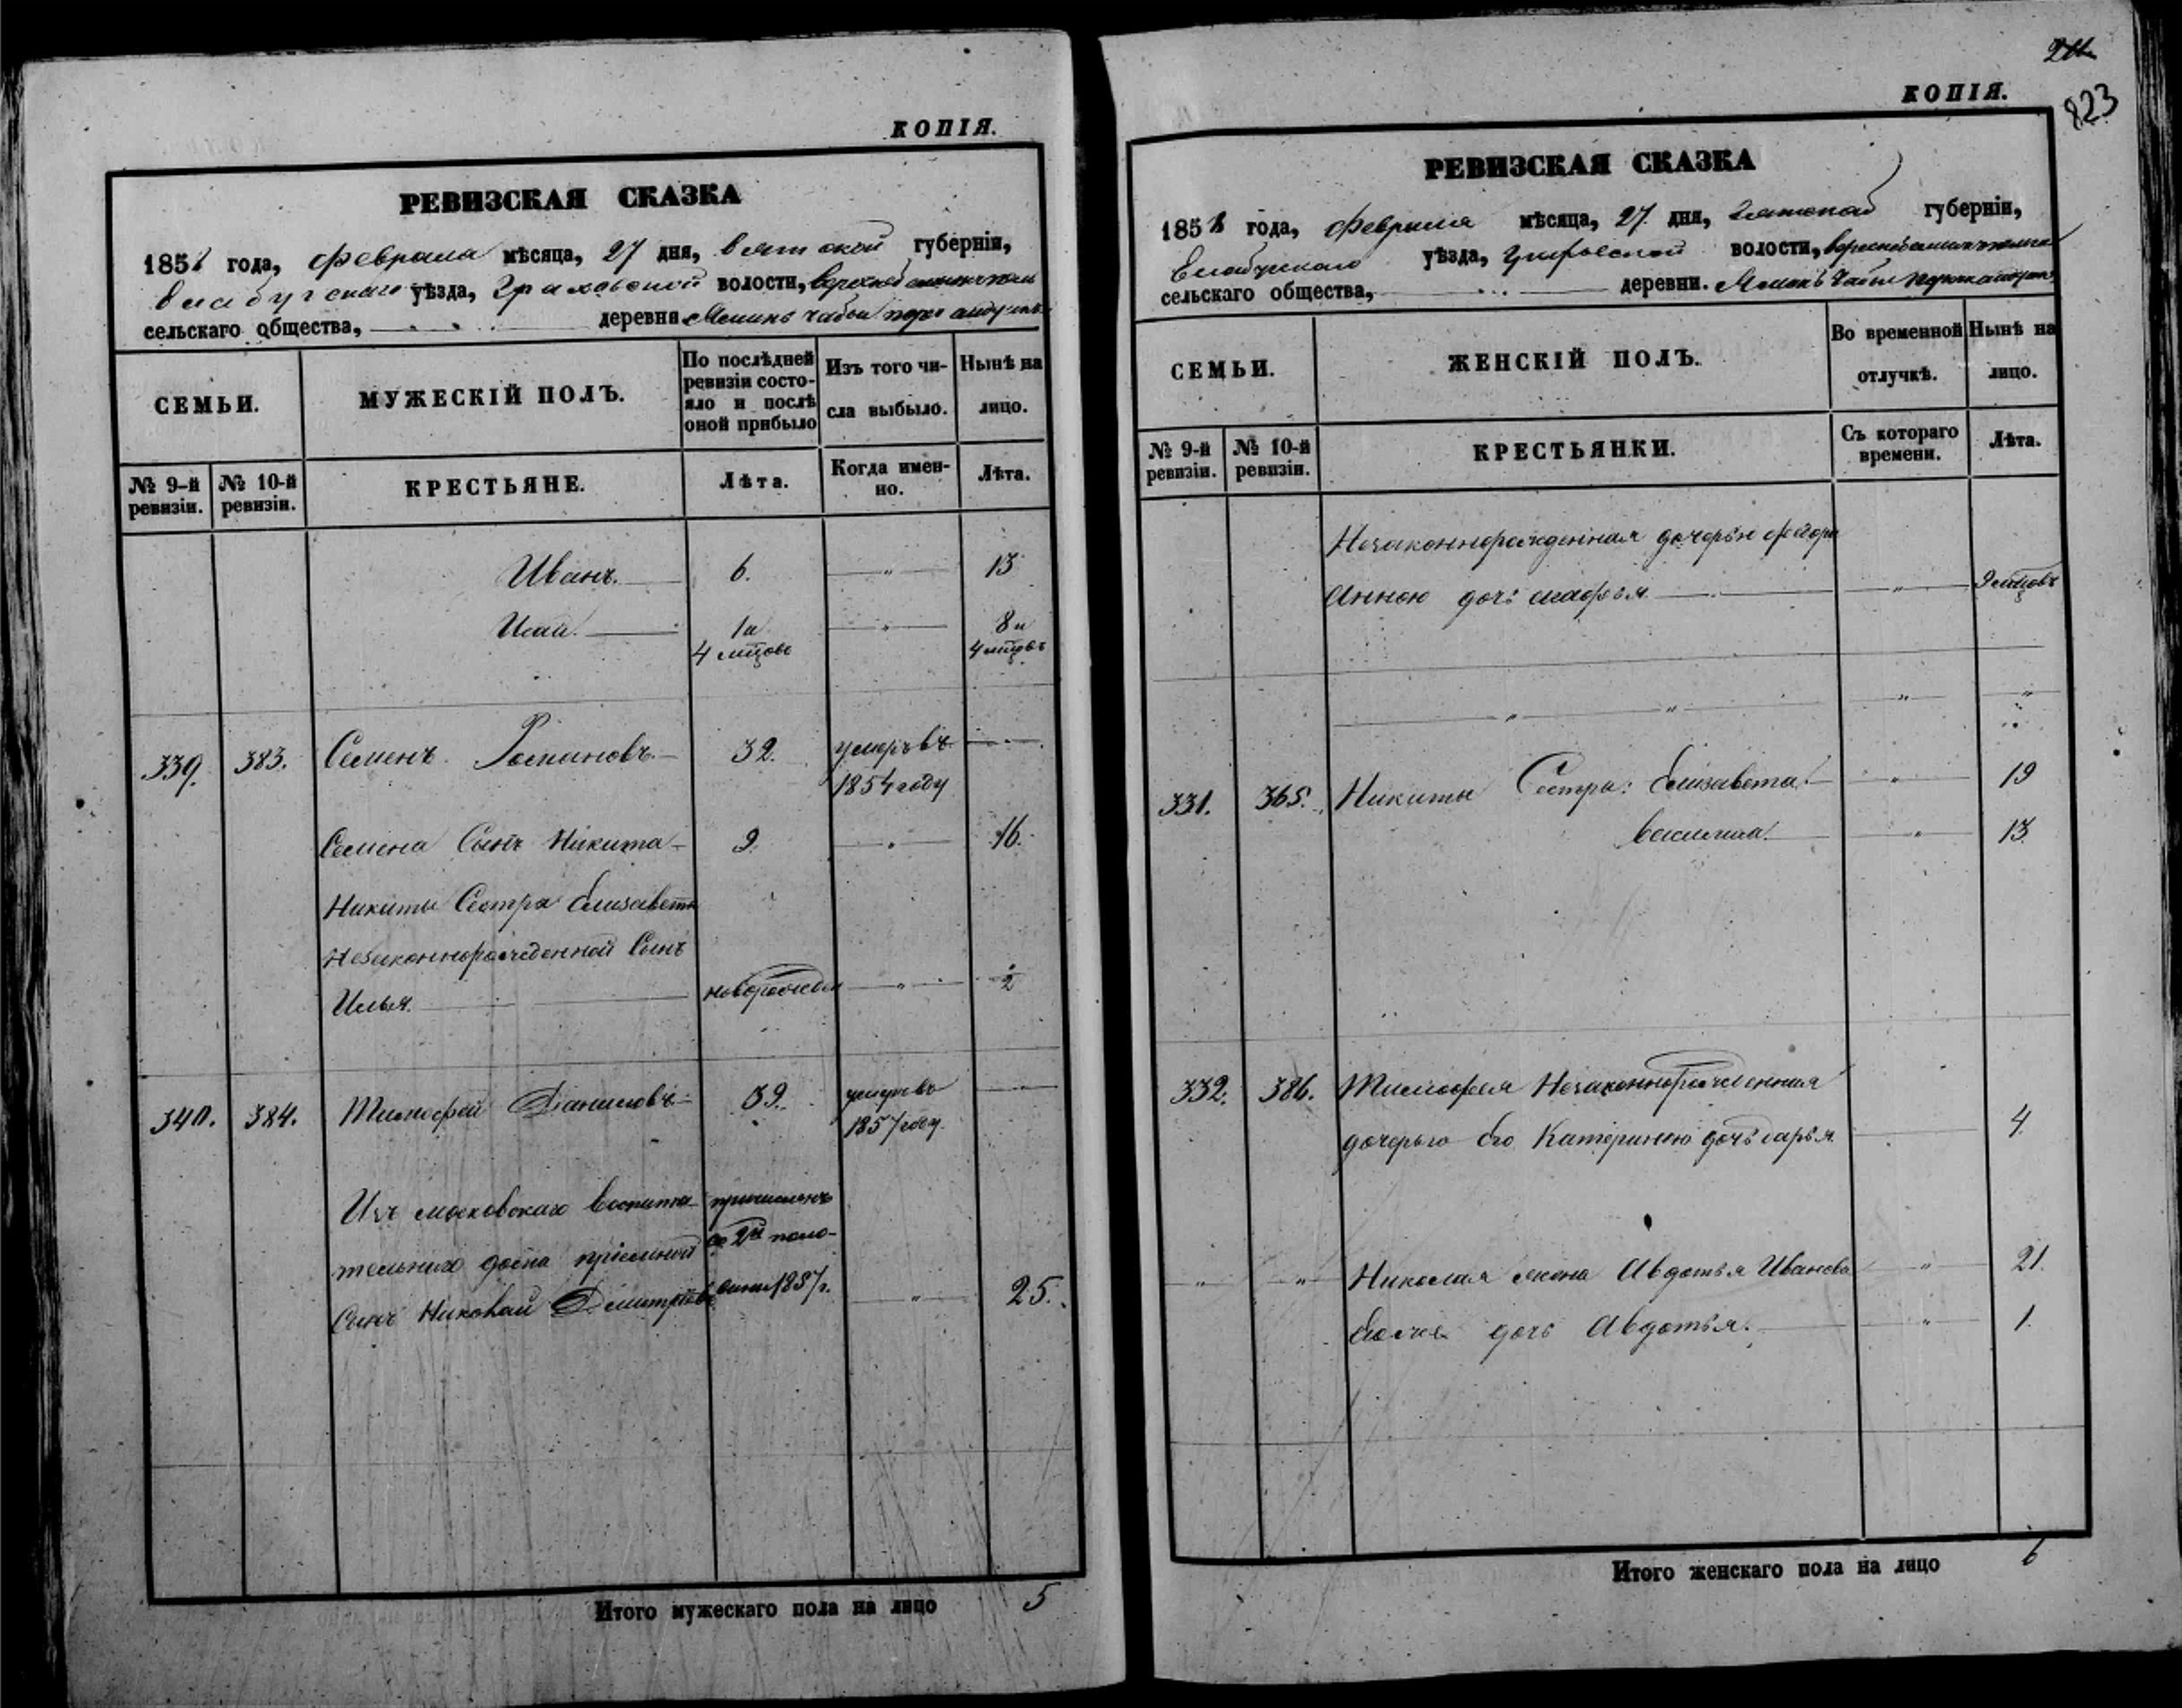 КОПІЯ.
РЕВИЗСКАЯ СКАЗКА
1858 года, февраля мѣсяца, 27 дня, вятской губерніи,
елабугскаго уѣзда, Граховской волости,
сельскаго общества, деревни
СЕМЬИ.
МУЖЕСКІЙ ПОЛЪ.
По послѣдней ревизіи состо-
яло и послѣ оной прибыло
Изъ того чи-
сла выбыло.
Нынѣ на
лицо.
№ 9-й ревизіи.
№ 10-й ревизіи.
КРЕСТЬЯНЕ.
Лѣта.
Когда имен-
но.
Лѣта.
Иванъ. 6. 13
Исай. 1 и 8 и
4 мцовъ 4 мцовъ
339. 383. Семенъ Романовъ. 32. умеръ въ
1854 году
Семена Сынъ Никита 9. 16.
Никиты Сестра Елизаветы
Незаконнорожденной Сынъ
Илья. новорожден 1/2
340. 384. Тимофей Даниловъ 39. умеръ въ
1857 году
Изъ московскаго воспита- причисленъ
тельнаго дома пріемной со 2й поло-
Сынъ Николай Дмитріевъ вины 1857 г. 25.
Итого мужескаго пола на лицо 5
823
КОПІЯ.
РЕВИЗСКАЯ СКАЗКА
1858 года, февраля мѣсяца, 27 дня, вятской губерніи,
Елабугскаго уѣзда, Граховской волости,
сельскаго общества, деревни.
СЕМЬИ.
ЖЕНСКІЙ ПОЛЪ.
Во временной
отлучкѣ.
Нынѣ на
лицо.
№ 9-й ревизіи.
№ 10-й ревизіи.
КРЕСТЬЯНКИ.
Съ котораго
времени.
Лѣта.
Незаконнорожденная дочерью Федора
Анною дочь Марфа 9 мцовъ
331. 365. Никиты Сестра: Елизавета 19
Василиса 13
332. 386. Тимофея Незаконнорожденная
дочерью его Катериною дочь Дарья 4.
Николая жена Авдотья Иванова 21.
его же дочь Авдотья. 1.
Итого женскаго пола на лицо 6